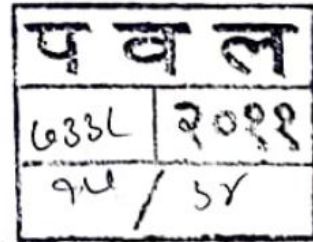 प व ल
७३३८ २०११
१५ / ३४